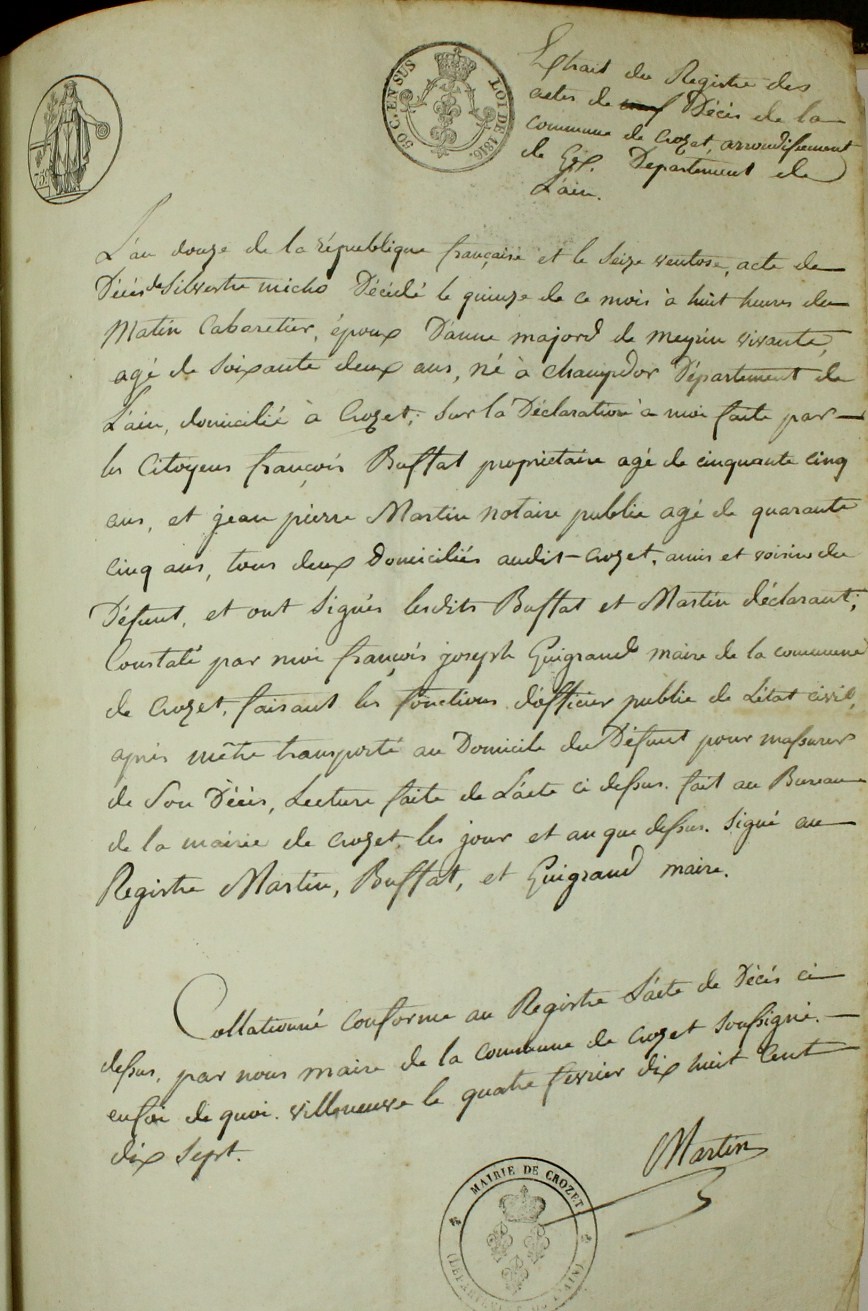 50 C. EN SUS
LOI DE 1816.
Extrait du Registre des
actes de Décès de la
commune de Crozet, arrondissement
de Gex. Departement de
L'ain.
L'an douze de la république française et le seize ventose, acte de
Décès de Silvestre micho Décédé le quinze de ce mois à huit heures du
Matin Cabaretier, époux D'anne majord de meyrin vivante,
agé de soixante deux ans, né à champdor Département de
L'ain, domicilié à Crozet; sur la Déclaration à moi faite par
les Citoyens françois Buffat propriétaire agé de cinquante cinq
ans, et jean pierre Martin notaire public agé de quarante
cinq ans, tous deux Domiciliés audit-crozet, amis et voisins du
Défunt, et ont signés lesdits Buffat et Martin déclarant;
Constaté par moi françois joseph Guigrand maire de la commune
de crozet, faisant les fonctions d'officier public de L'état civil,
après m'être transporté au Domicile du Défunt pour m'assurer
de son Décès, Lecture faite de L'acte ci dessus. fait au Bureau
de la mairie de crozet, les jour et an que dessus. signé au
Registre Martin, Buffat, et Guigrand maire.
Collationné conforme au Registre L'acte de Décès ci
dessus, par nous maire de la commune de crozet soussigné.
enfoi de quoi. villeneuve le quatre fevrier dix huit Cent
dix sept.
Martin
MAIRIE DE CROZET